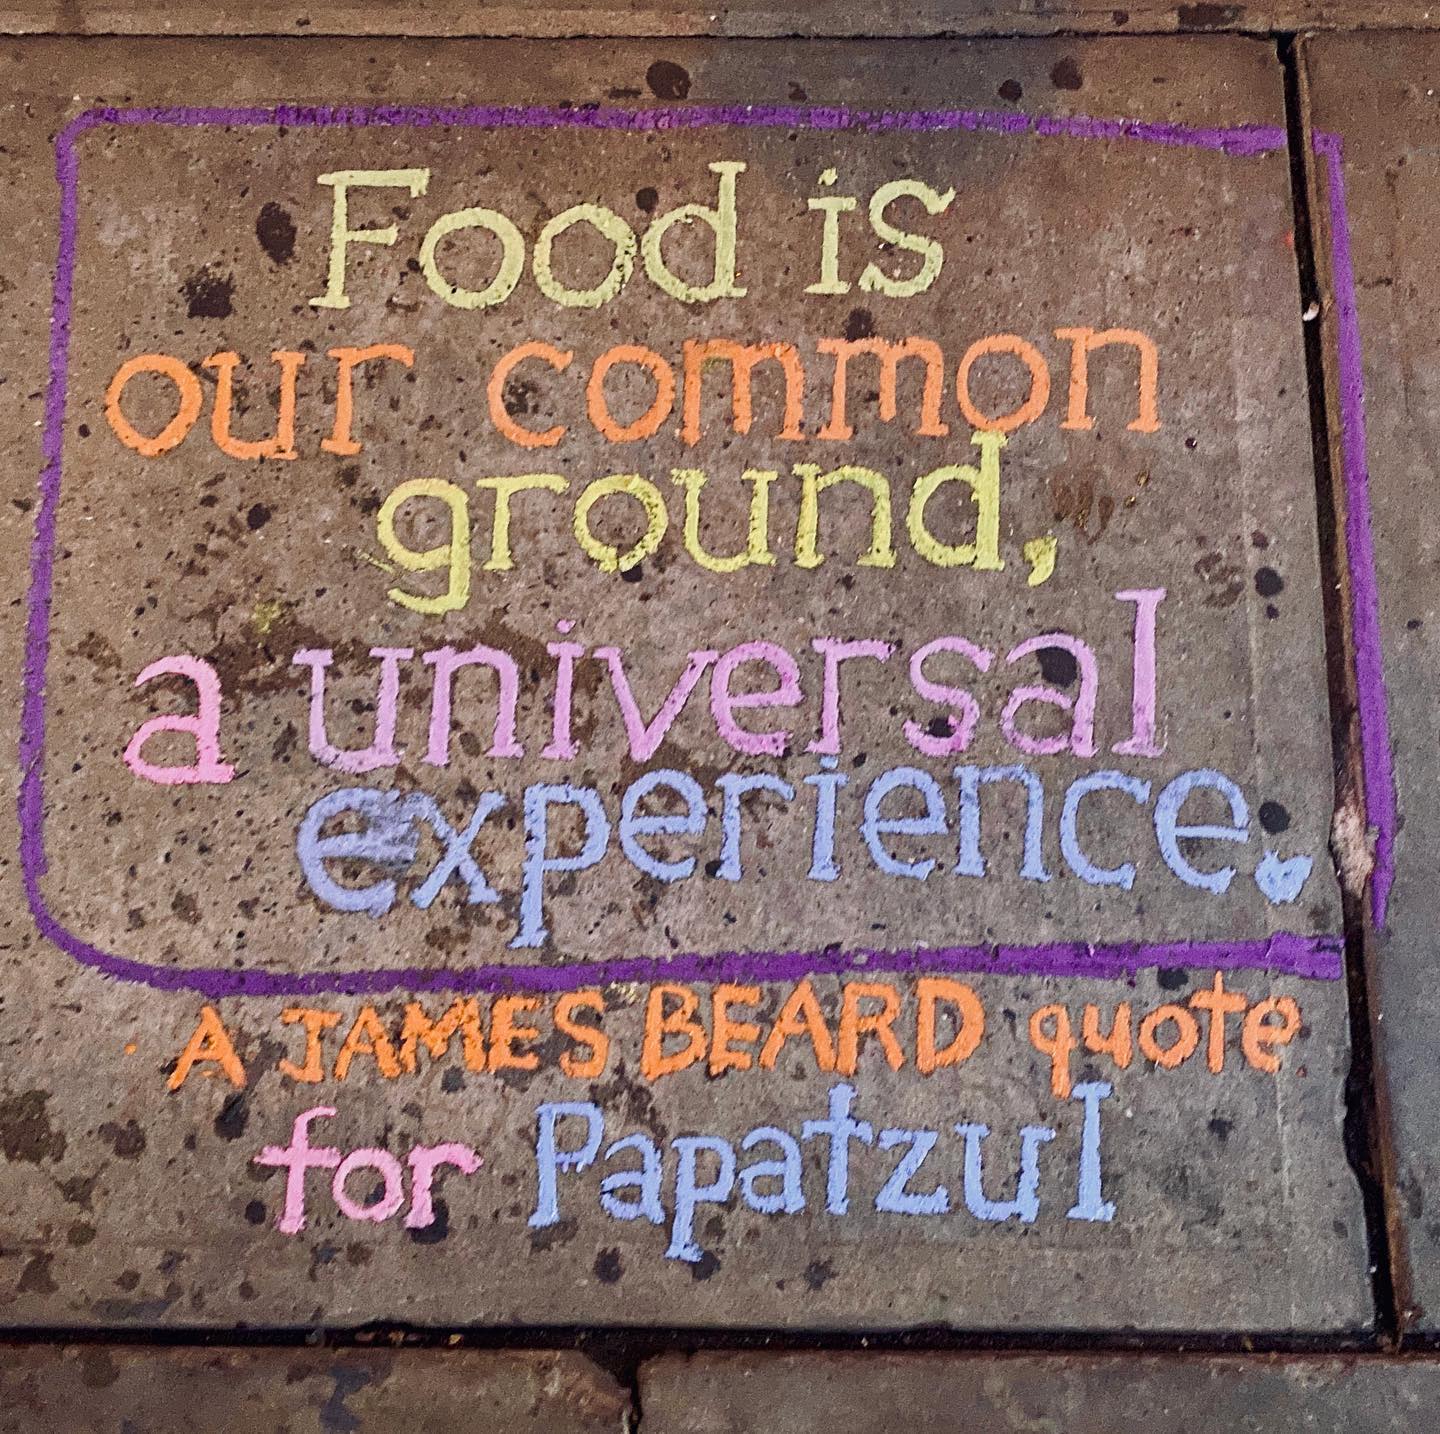 Food is
our common
ground,
a universal
experience.
A JAMES BEARD quote
for Papatzul